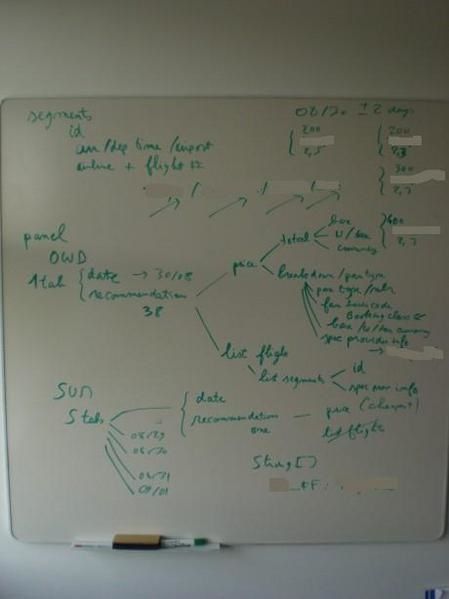 segments
id
arr/dep time / airport
airline + flight nr
08/30 ± 2 days
200
2,5
200
300
2,7
panel
OWD
1 tab
date → 30/08
recommendation
38
price
total
tax
currency
600
2,7
breakdown / pax type
pax type / nbr
fare basis code
Booking class
spec provider info
list flight
list segments
id
spec prov info
SUN
5 tabs
08/29
08/30
08/31
09/01
date
recommendation
one
price (cheapest)
list flight
String []